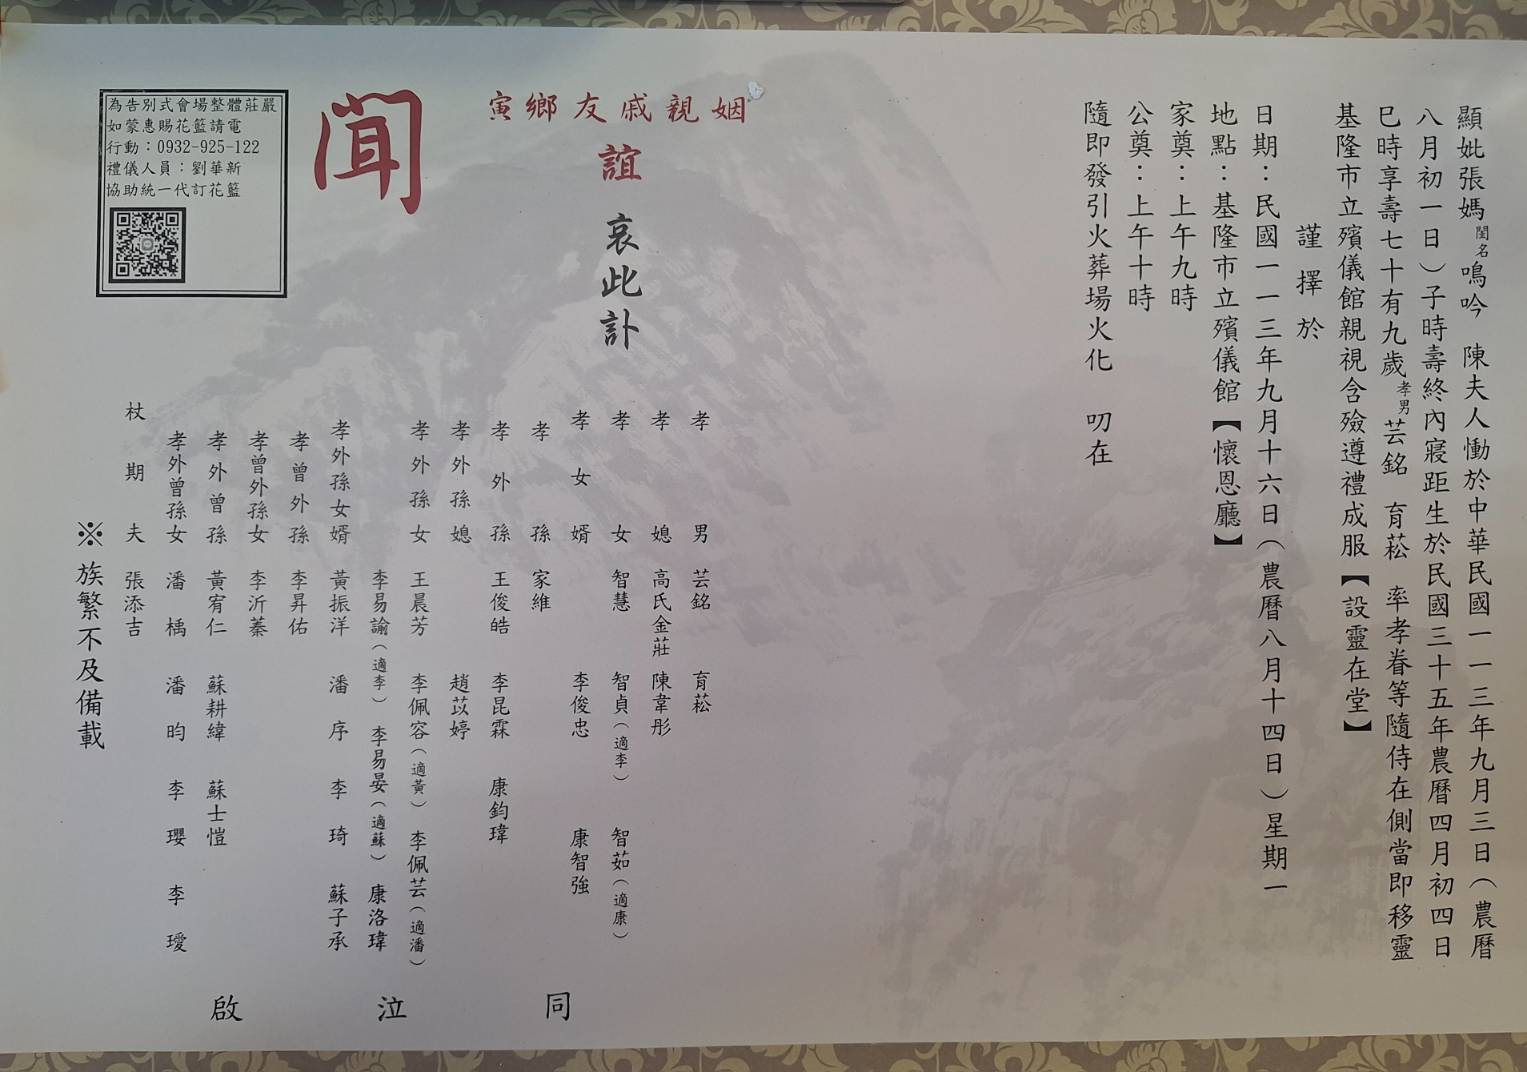 顯妣張媽閨名鳴吟 陳夫人慟於中華民國一一三年九月三日（農曆
八月初一日）子時壽終內寢距生於民國三十五年農曆四月初四日
巳時享壽七十有九歲孝男芸銘 育菘 率孝眷等隨侍在側當即移靈
基隆市立殯儀館親視含殮遵禮成服【設靈在堂】
謹擇於
日期：民國一一三年九月十六日（農曆八月十四日）星期一
地點：基隆市立殯儀館【懷恩廳】
家奠：上午九時
公奠：上午十時
隨即發引火葬場火化 叨在
寅鄉友戚親姻
誼 哀此訃
聞
孝男 芸銘 育菘
孝媳 高氏金莊 陳韋彤
孝女 智慧 智貞（適李） 智茹（適康）
孝女婿 李俊忠 康智強
孝孫 家維
孝外孫 王俊皓 李昆霖 康鈞瑋
孝外孫媳 趙苡婷
孝外孫女 王晨芳 李佩容（適黃） 李佩芸（適潘）
李易諭（適李） 李易晏（適蘇） 康洛瑋
孝外孫女婿 黃振洋 潘序 李琦 蘇子承
孝曾外孫 李昇佑
孝曾外孫女 李沂蓁
孝外曾孫 黃宥仁 蘇耕緯 蘇士愷
孝外曾孫女 潘楀 潘昀 李瓔 李璦
杖期夫 張添吉
※族繁不及備載
同泣啟
為告別式會場整體莊嚴
如蒙惠賜花籃請電
行動：0932-925-122
禮儀人員：劉華新
協助統一代訂花籃